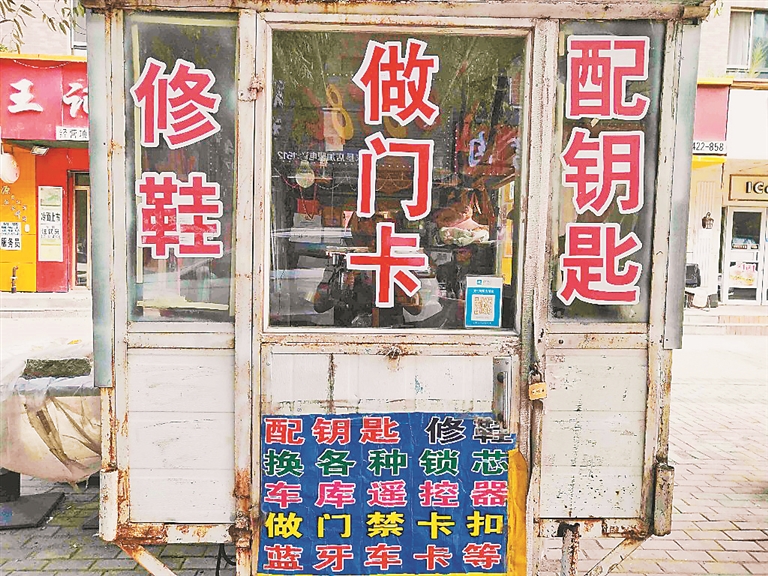 修鞋
做门卡
配钥匙
配钥匙 修鞋
换各种锁芯
车库遥控器
做门禁卡扣
蓝牙车卡等
王记
422-858
服务员